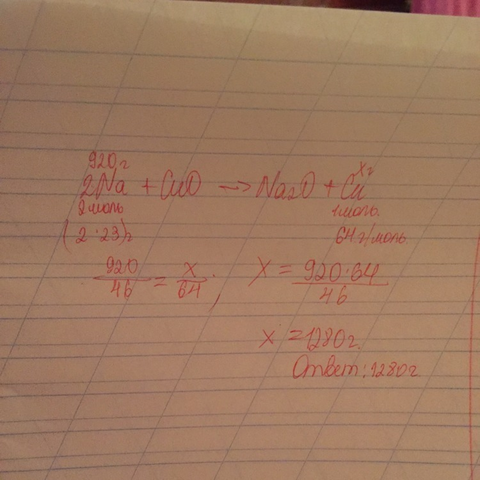 920г xг
2Na + CuO → Na2O + Cu
2 моль 1 моль
(2·23)г 64 г/моль
920/46 = x/64; X = 920·64/46
x = 1280г.
Ответ: 1280г